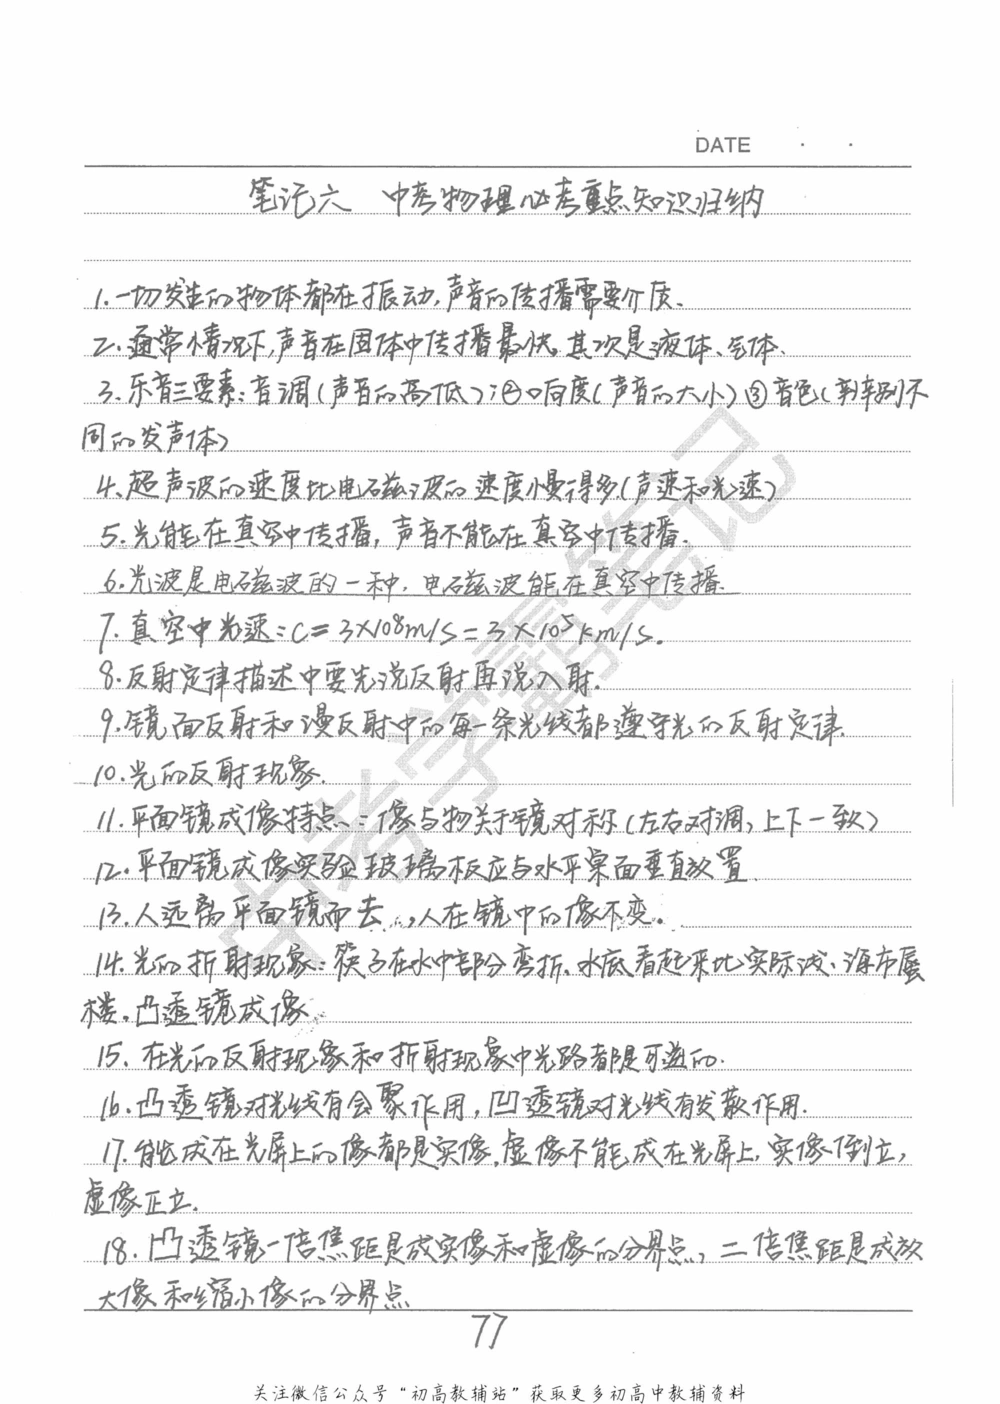 DATE · ·
笔记六 中考物理必考重点知识归纳
1.一切发生的物体都在振动,声音的传播需要介质.
2.通常情况下,声音在固体中传播最快,其次是液体、气体.
3.乐音三要素:音调(声音的高低);②响度(声音的大小)③音色(辨别不
同的发声体)
4.超声波的速度比电磁波的速度慢得多(声速和光速)
5.光能在真空中传播,声音不能在真空中传播.
6.光波是电磁波的一种,电磁波能在真空中传播.
7.真空中光速:C=3×10⁸m/s=3×10⁵km/s.
8.反射定律描述中要先说反射再说入射.
9.镜面反射和漫反射中的每一条光线都遵守光的反射定律.
10.光的反射现象.
11.平面镜成像特点:像与物关于镜对称(左右对调,上下一致)
12.平面镜成像实验玻璃板应与水平桌面垂直放置.
13.人远离平面镜而去,人在镜中的像不变。
14.光的折射现象:筷子在水中部分弯折、水底看起来比实际浅、海市蜃
楼。凸透镜成像.
15.在光的反射现象和折射现象中光路都是可逆的.
16.凸透镜对光线有会聚作用,凹透镜对光线有发散作用.
17.能成在光屏上的像都是实像,虚像不能成在光屏上,实像倒立,
虚像正立.
18.凸透镜一倍焦距是成实像和虚像的分界点,二倍焦距是成放
大像和缩小像的分界点
77
关注微信公众号“初高教辅站”获取更多初高中教辅资料
中考学霸笔记